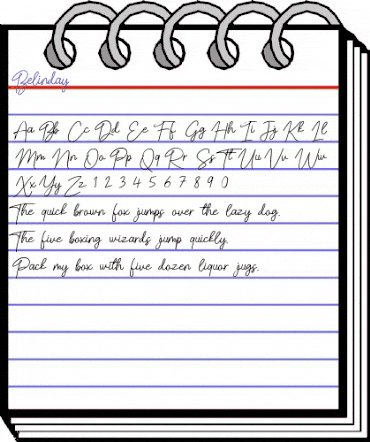 Belinday
Aa Bb Cc Dd Ee Ff Gg Hh Ii Jj Kk Ll
Mm Nn Oo Pp Qq Rr Ss Tt Uu Vv Ww
Xx Yy Zz 1 2 3 4 5 6 7 8 9 0
The quick brown fox jumps over the lazy dog.
The five boxing wizards jump quickly.
Pack my box with five dozen liquor jugs.